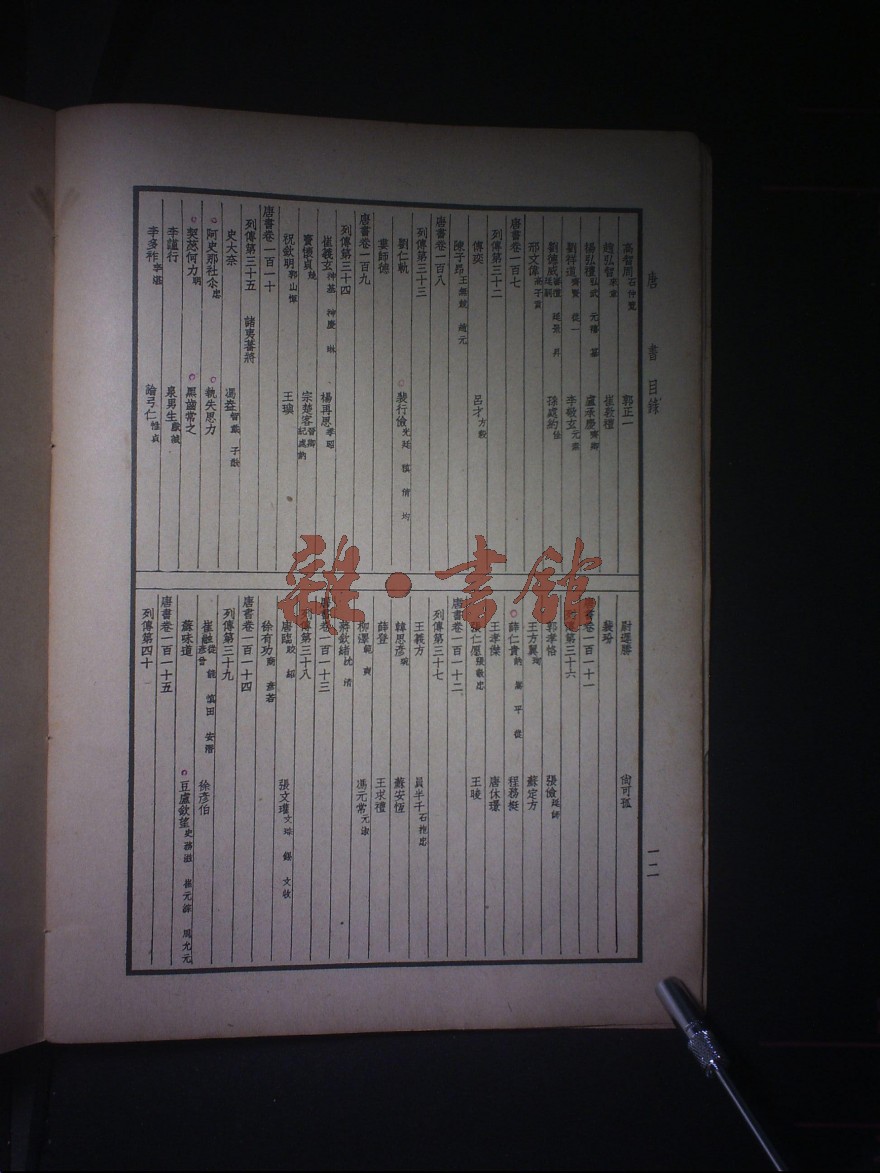 唐書目錄
一二
高智周 石仲覽 郭正一
趙弘智 來章 崔敦禮
楊弘禮 弘武 元禧 纂 盧承慶 齊卿
劉祥道 齊賢 從一 李敬玄 元素
劉德威 審禮 延景 昇 延嗣 孫處約 佺
邢文偉 高子貢
唐書卷一百七
列傳第三十二
傅奕 呂才 方毅
陳子昂 王無競 趙元
唐書卷一百八
列傳第三十三
劉仁軌 裴行儉 光廷 稹 倩 均
婁師德
唐書卷一百九
列傳第三十四
崔義玄 神基 神慶 琳 楊再思 季昭
竇懷貞 兢 宗楚客 晉卿 紀處訥
祝欽明 郭山惲 王璵
唐書卷一百一十
列傳第三十五 諸夷蕃將
史大奈 馮盎 智戴 子猷
阿史那社尒 忠 執失思力
契苾何力 明 黑齒常之
李謹行 泉男生 獻誠
李多祚 李湛 論弓仁 惟貞
尉遲勝 尚可孤
裴玢
唐書卷一百一十一
列傳第三十六
郭孝恪 張儉 延師
王方翼 珣 蘇定方
薛仁貴 訥 嵩 平 從 程務挺
王孝傑 唐休璟
張仁愿 張敬忠 王晙
唐書卷一百一十二
列傳第三十七
王義方 員半千 石抱忠
韓思彥 琬 蘇安恆
薛登 王求禮
柳澤 範 奭 馮元常 元淑
蔣欽緒 沇 清
唐書卷一百一十三
列傳第三十八
唐臨 皎 紹 張文瓘 文琮 錫 文收
徐有功 商 彥若
唐書卷一百一十四
列傳第三十九
崔融 從 能 慎由 安潛 彥曾 徐彥伯
蘇味道 豆盧欽望 史務滋 崔元綜 周允元
唐書卷一百一十五
列傳第四十
雜·書館